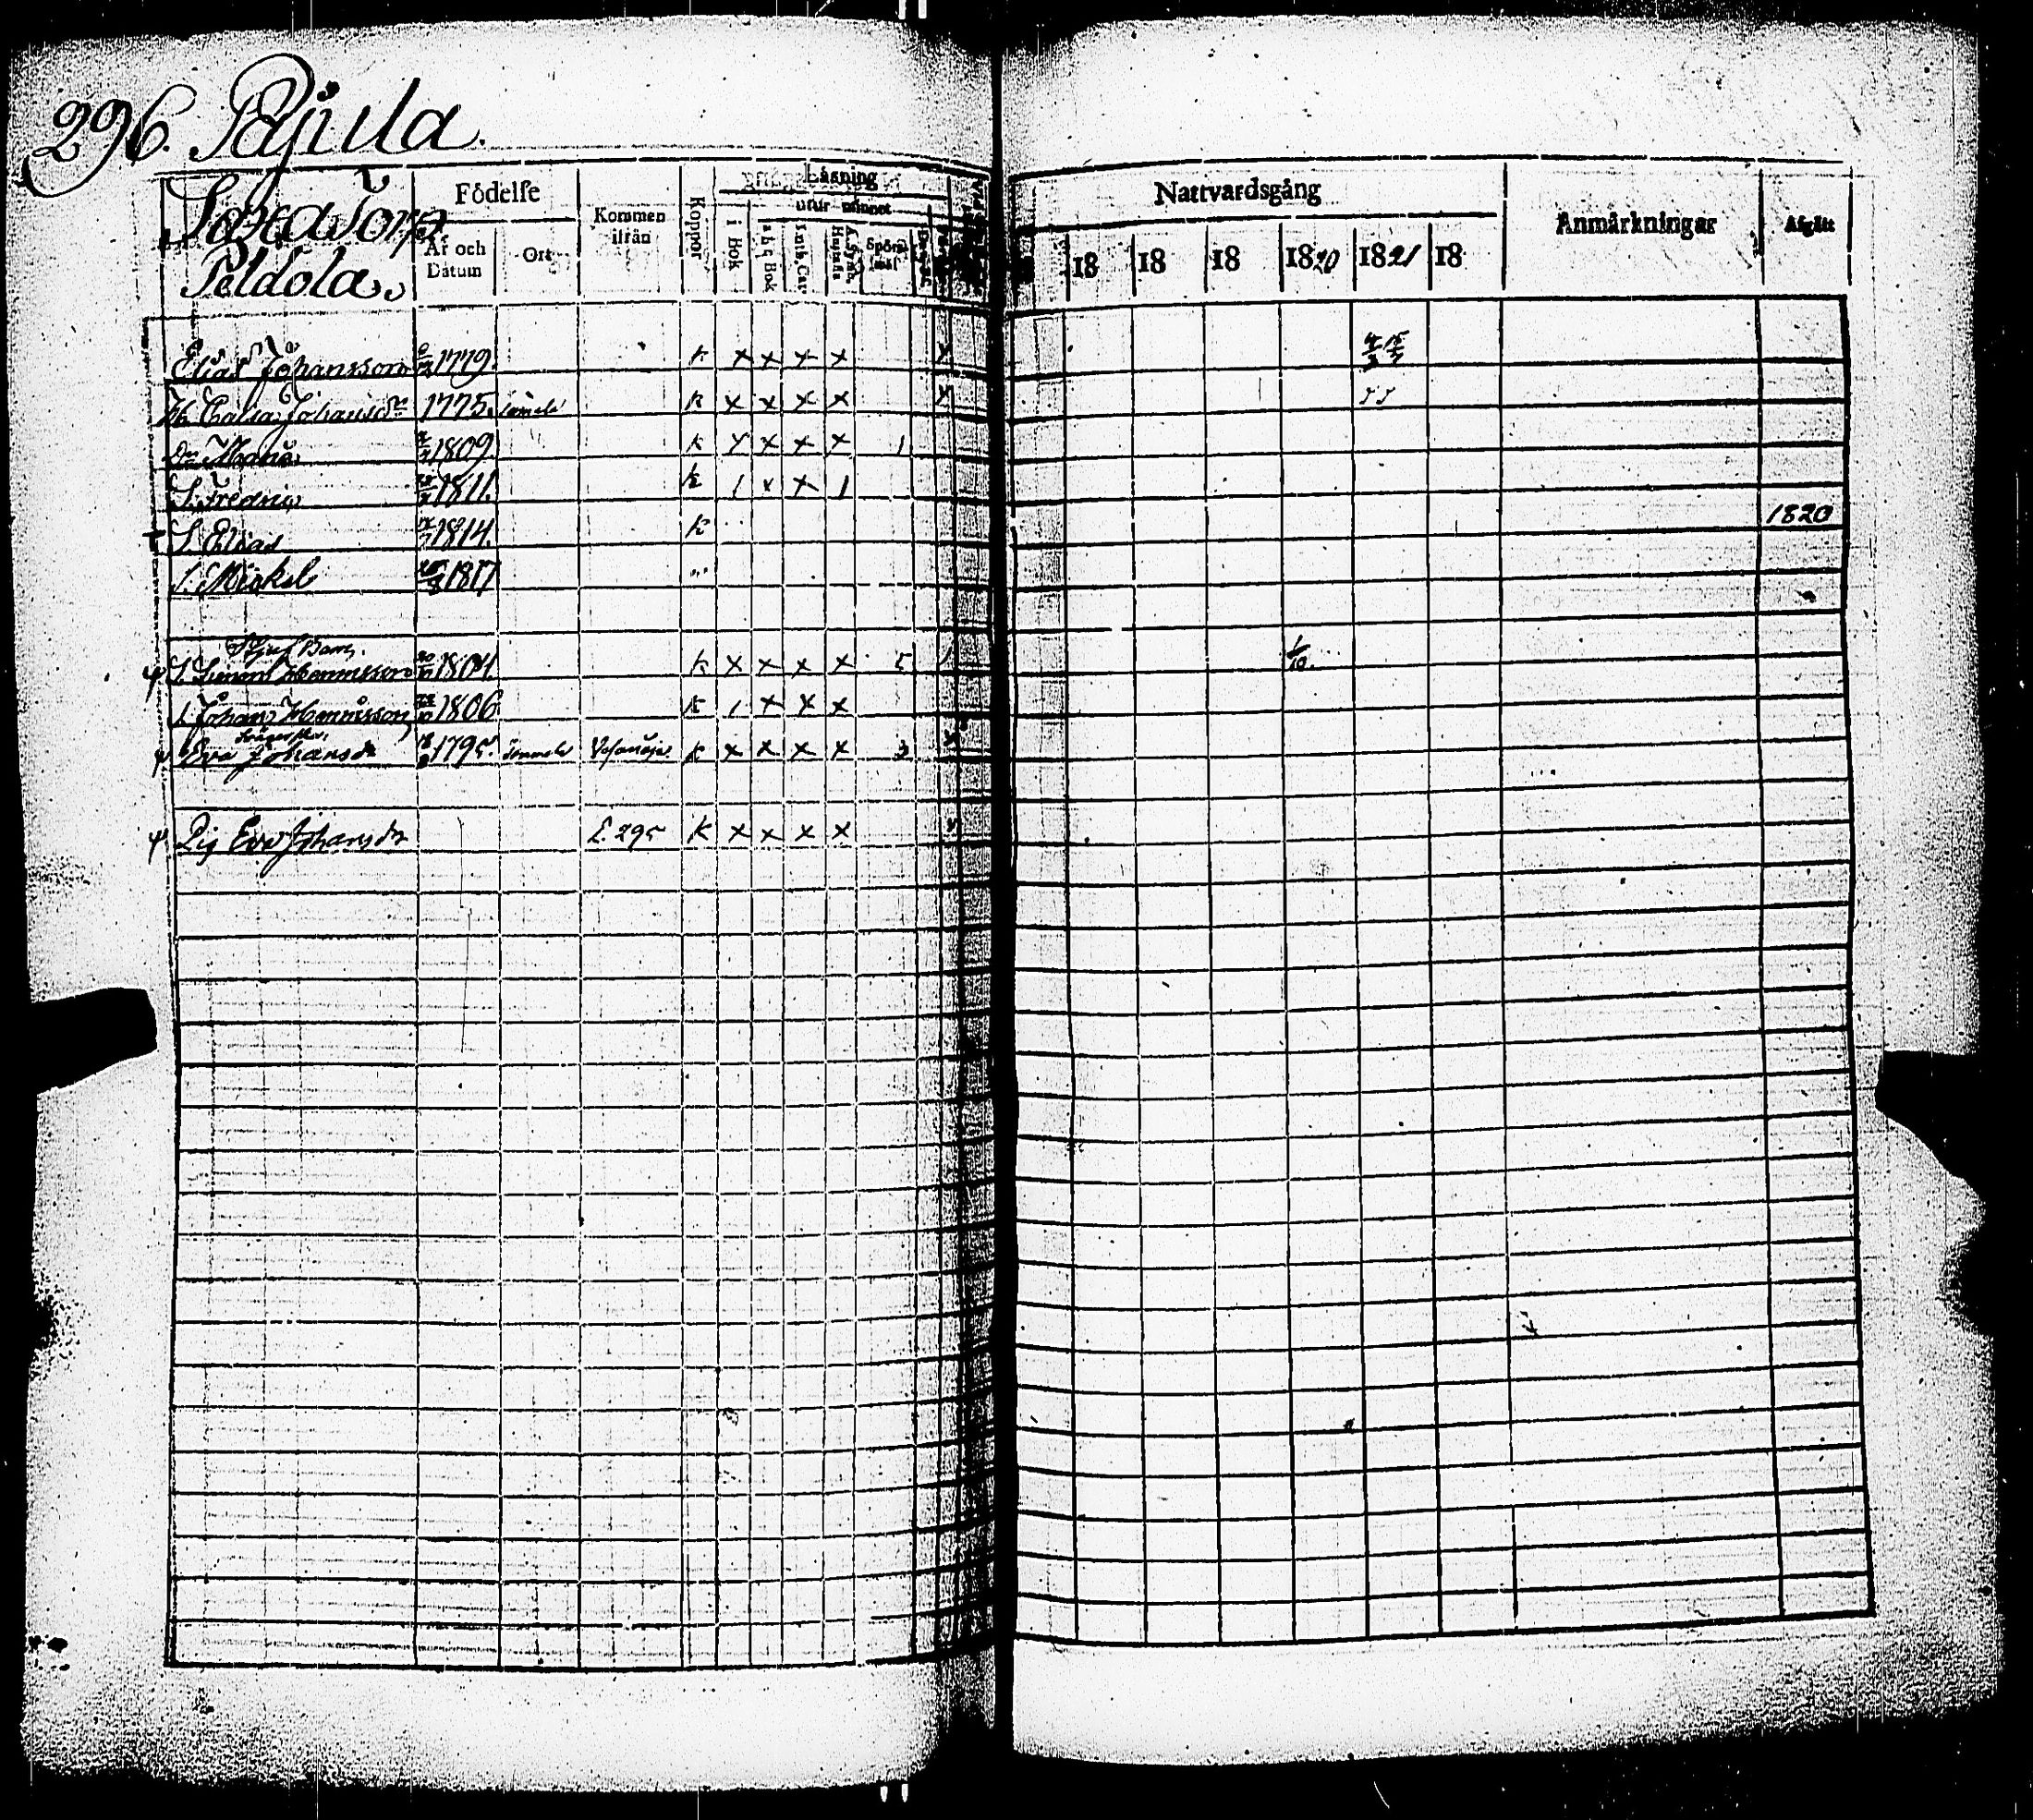 296. Pajula.
Torp
Peldola.
Födelse
År och Datum
Ort
Kommen ifrån
Koppor
Läsning
utur minnet
i Bok
a b c Bok
Luth. Cat.
A. Symb.
Hustafla
Spörsmål
Nattvardsgång
18 18 18 1820 1821 18
Anmärkningar
Afgått
Elias Johansson 1779. k x x x x x
H. Caisa Johansdr 1775. k x x x x x
Dr Maria 1809. k x x x x 1
S. Fredric 1811. k 1 x x 1
† S. Elias 1814. k 1820
S. Mickel 1817
Styf Barn.
S. Simon Henricsson 20/10 1804. k x x x x 5 1 1/10
S. Johan Henricsson 1806 k 1 x x x
Eva Johansdr 1795. k x x x x 3 x
Pig Eva Johansdr £ 295 k x x x x x